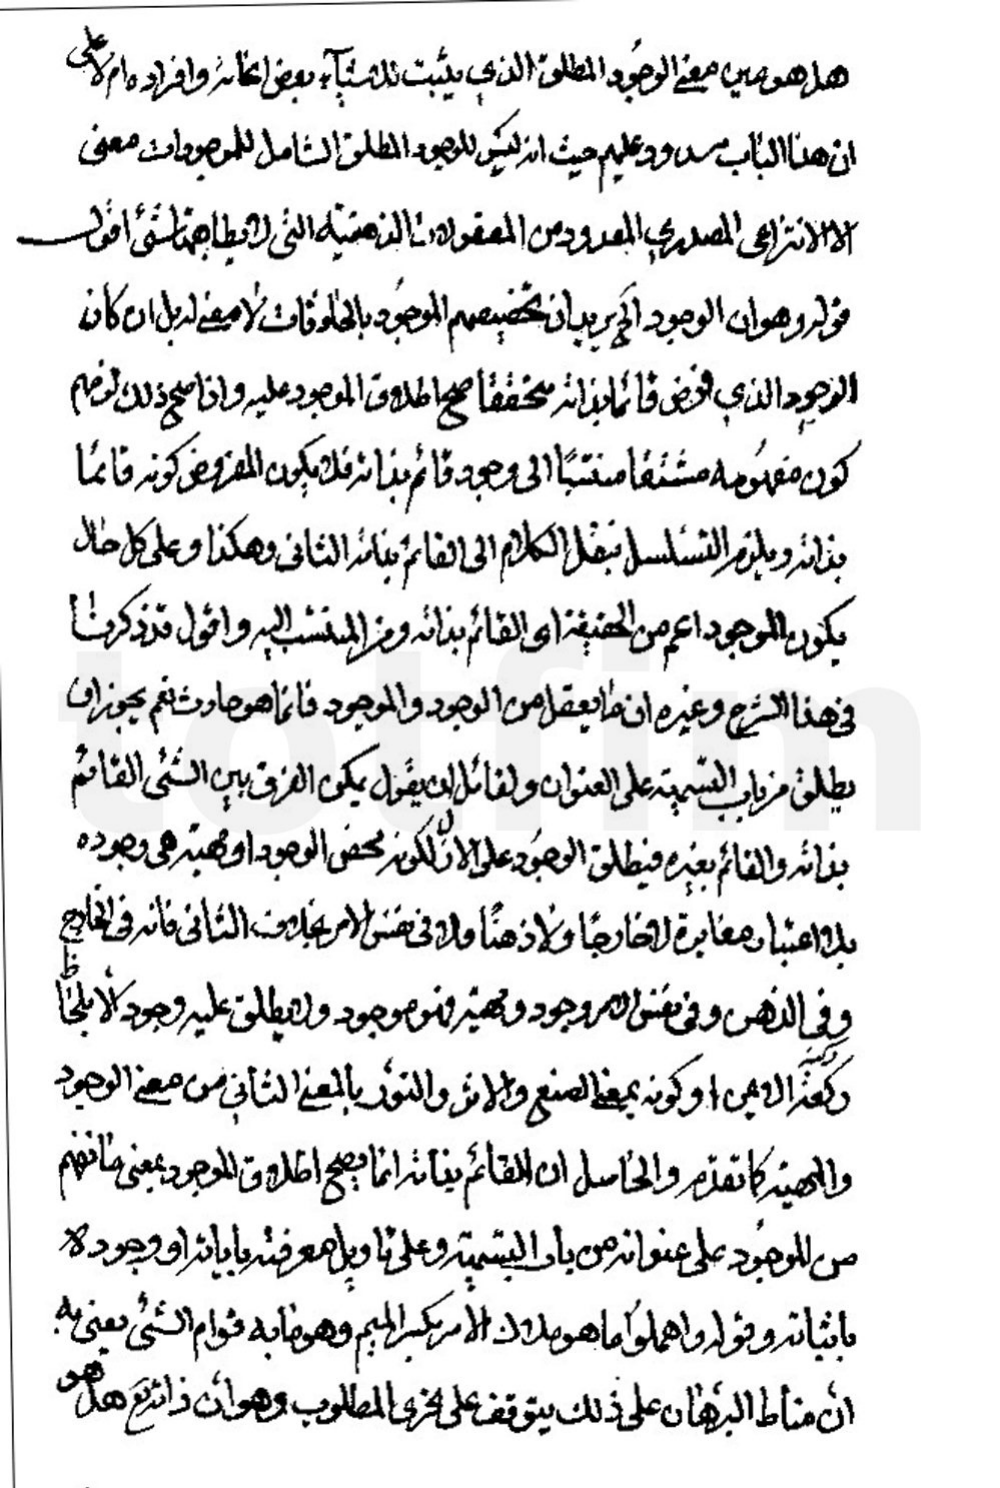 هل هو عين معنى الوجود المطلق الذي يثبت للاشياء بعض انحائه وافراده ام لا على
ان هذا الباب مسدود عليهم حيث انه ليس للوجود المطلق الشامل للموجودات معنى
الا الانتزاعي المصدري المعدود من المعقولات الذهنية التي لا يطابقها شئ اقول
قوله وهو ان الوجود الخ يريد ان تخصيصهم الموجود بالمخلوقات لا معنى له بل ان كان
الوجود الذي فرض قائما بذاته متحققا صح اطلاق الموجود عليه واذا صح ذلك لزمهم
كون مفهومه مشتقا منتسبا الى وجود قائم بذاته فلا يكون المفروض كونه قائما
بذاته ويلزم التسلسل فينقل الكلام الى القائم بذاته الثاني وهكذا وعلى كل حال
يكون الموجود اعم من الحقيقة اى القائم بذاته ومن المنتسب اليه واقول قد ذكرنا
في هذا الشرح وغيره ان ما يعقل من الوجود والموجود فانما هو حادث نعم يجوز ان
يطلق من باب التسمية على العنوان ولقائل ان يقول يمكن الفرق بين الشئ القائم
بذاته والقائم بغيره فيطلق الوجود على الاول لكونه محض الوجود او مهيته هي وجوده
بلا اعتبار مغايرة لا خارجا ولا ذهنا ولا في نفس الامر بخلاف الثاني فانه في الخارج
وفي الذهن وفي نفس الامر وجود ومهية فهو موجود ولا يطلق عليه وجود الا بلحاظ
ركنه الايمن او كونه بمعنى الصنع والاثر والنور بالمعنى الثاني من معنى الوجود
والمهية كما تقدم والحاصل ان القائم بذاته انما يصح اطلاق الموجود بمعنى ما نفهم
من الموجود على عنوانه من باب التسمية وعلى تاويل معرفته باياته او وجود لا
باثباته وقوله واهملوا ما هو ملاك الامر بكسر الميم وهو ما به قوام الشئ يعنى به
ان مناط البرهان على ذلك يتوقف على تحرى المطلوب وهو ان ذاته تع هل هو